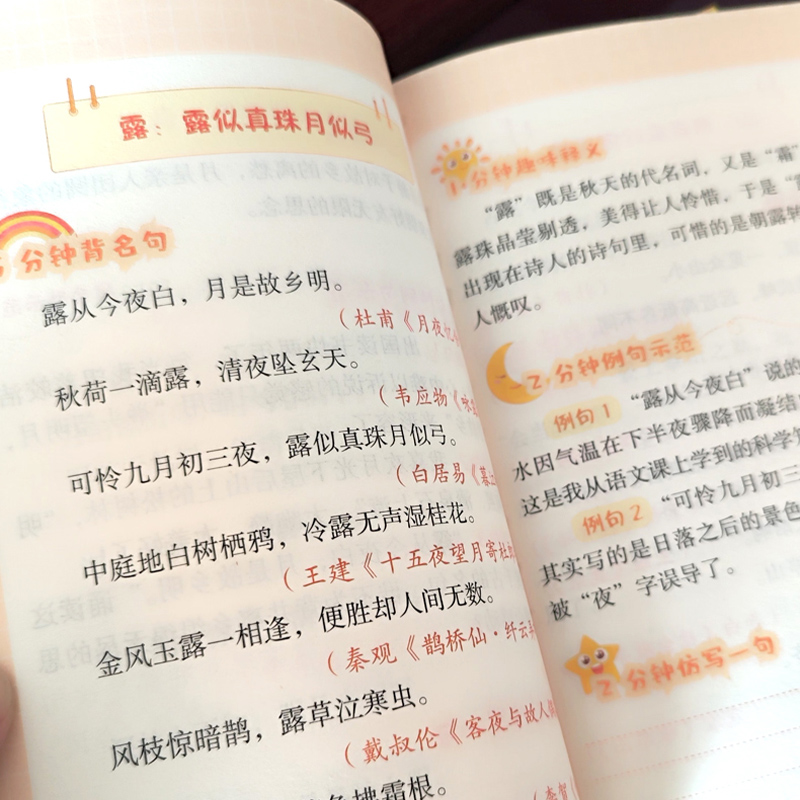 露：露似真珠月似弓
分钟背名句
露从今夜白，月是故乡明。
（杜甫《月夜忆
秋荷一滴露，清夜坠玄天。
（韦应物《咏
可怜九月初三夜，露似真珠月似弓。
（白居易《暮
中庭地白树栖鸦，冷露无声湿桂花。
（王建《十五夜望月寄杜
金风玉露一相逢，便胜却人间无数。
（秦观《鹊桥仙·纤云
风枝惊暗鹊，露草泣寒虫。
（戴叔伦《客夜与故人
拂霜根。
1分钟趣味释义
“露”既是秋天的代名词，又是“霜”
露珠晶莹剔透，美得让人怜惜，于是“
出现在诗人的诗句里，可惜的是朝露转
人慨叹。
2分钟例句示范
例句1 “露从今夜白”说的
水因气温在下半夜骤降而凝结
这是我从语文课上学到的科学知
例句2 “可怜九月初三
其实写的是日落之后的景色
被“夜”字误导了。
2分钟仿写一句